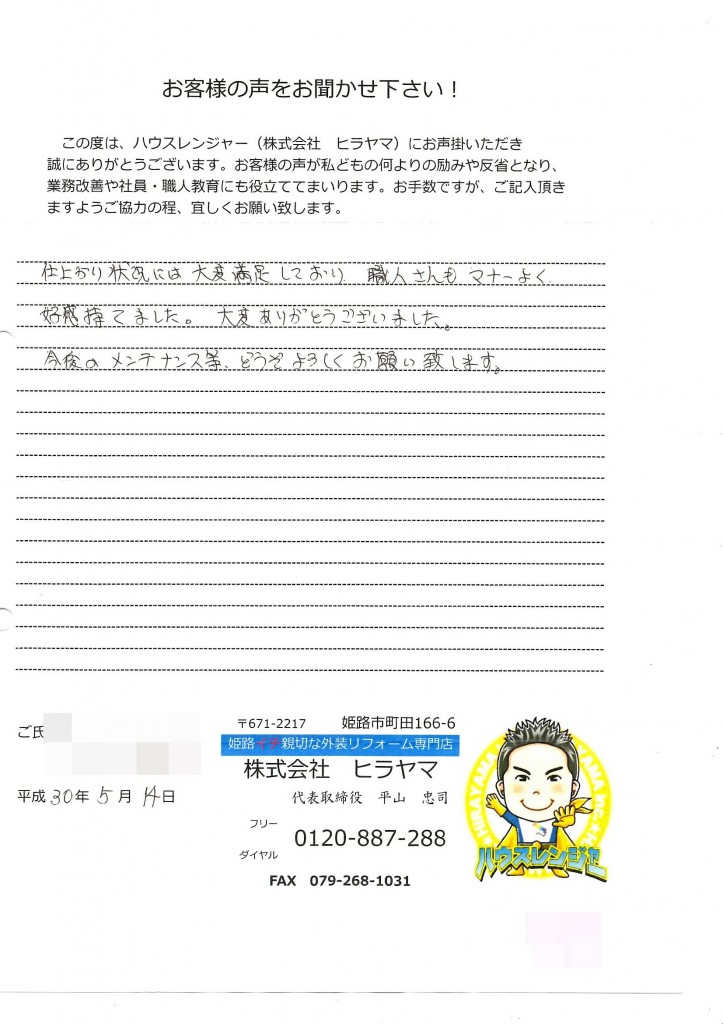 お客様の声をお聞かせ下さい！
この度は、ハウスレンジャー（株式会社　ヒラヤマ）にお声掛いただき
誠にありがとうございます。お客様の声が私どもの何よりの励みや反省となり、
業務改善や社員・職人教育にも役立ててまいります。お手数ですが、ご記入頂き
ますようご協力の程、宜しくお願い致します。
仕上がり状況には大変満足しており、職人さんもマナーよく、
好感持てました。大変ありがとうございました。
今後のメンテナンス等、どうぞよろしくお願い致します。
ご氏
平成30年5月14日
〒671-2217　姫路市町田166-6
姫路イチ親切な外装リフォーム専門店
株式会社　ヒラヤマ
代表取締役　平山　忠司
フリー
ダイヤル
0120-887-288
FAX　079-268-1031
ハウスレンジャー